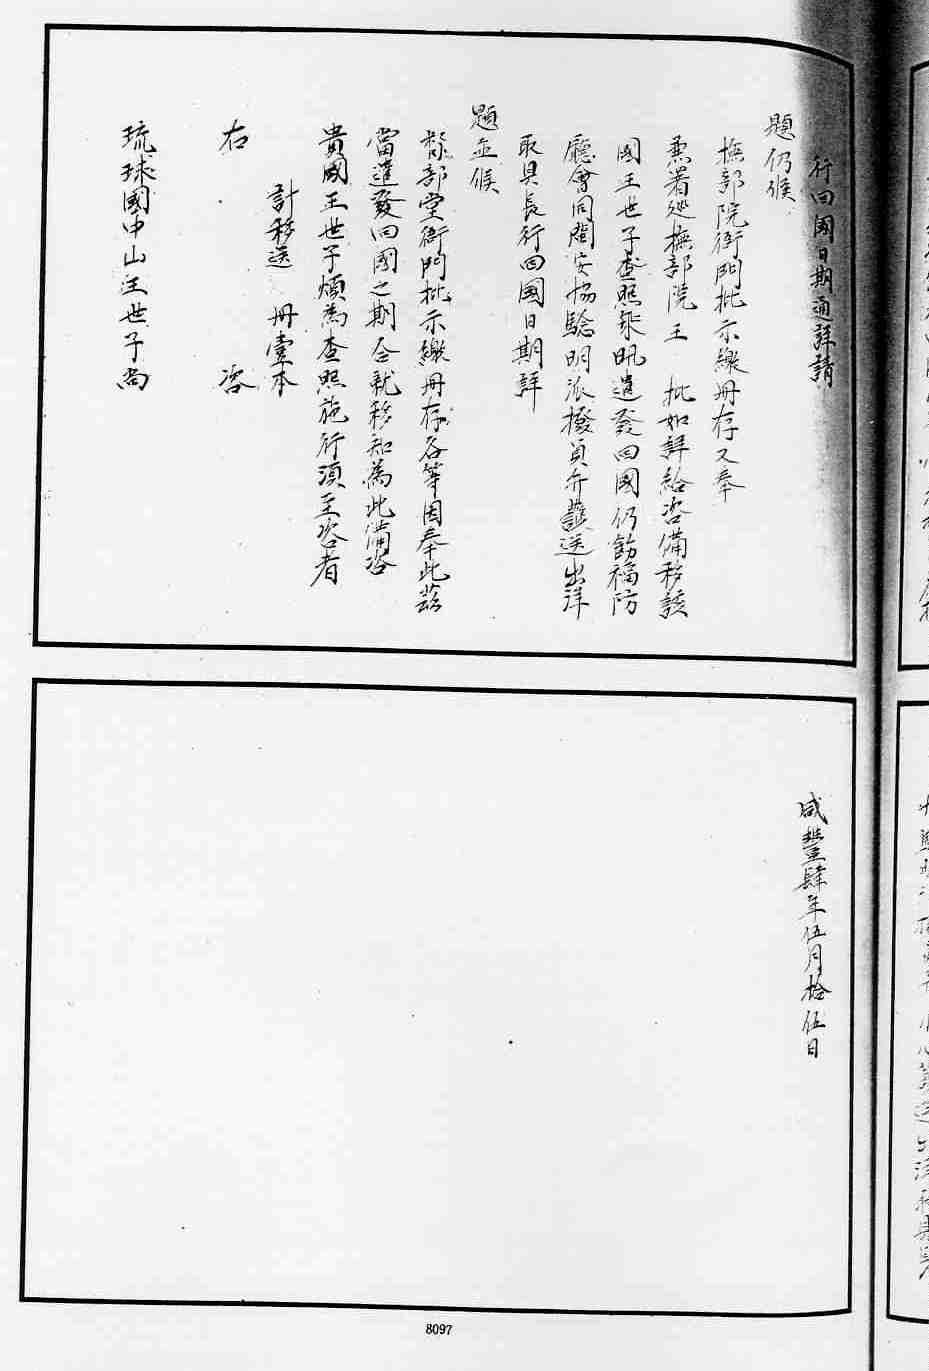 行回國日期通詳請
題仍候
撫部院衙門批示繳冊存又奉
兼署巡撫部院王 批如詳給咨備移該
國王世子查照飭遣發回國仍飭福防
廳會同閩安協驗明派撥員弁護送出洋
取具長行回國日期詳
題並候
督部堂衙門批示繳冊存各等因奉此茲
當遣發回國之期合就移知為此備咨
貴國王世子煩為查照施行須至咨者
計移送 冊壹本
右 咨
琉球國中山王世子尚
咸豐肆年伍月拾伍日
8097